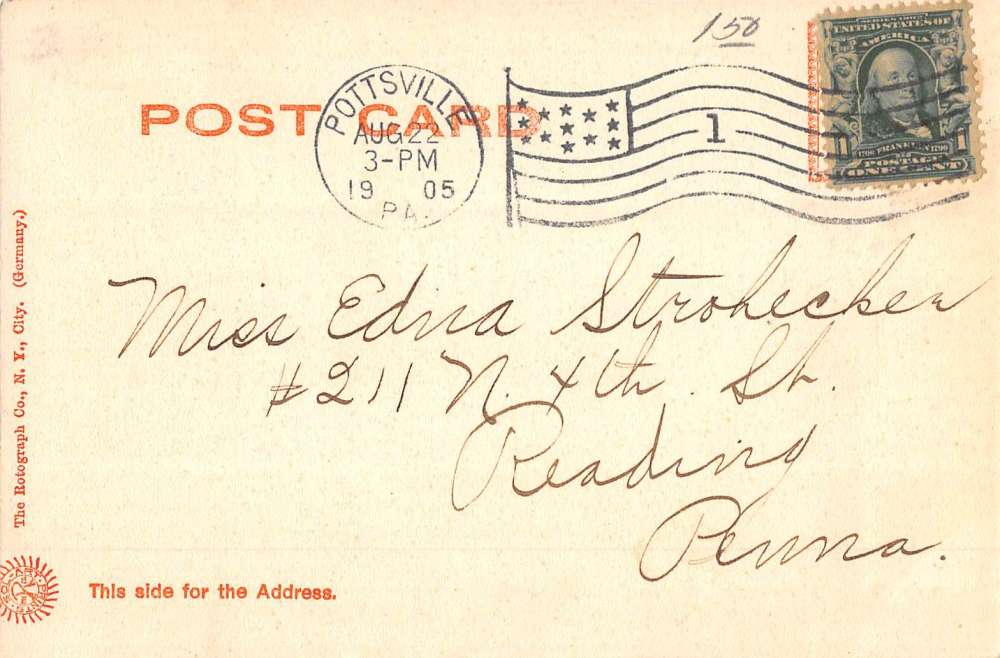 150
SERIES 1902
UNITED STATES OF
AMERICA
1706 FRANKLIN 1790
POSTAGE
ONE CENT
POST CARD
POTTSVILLE
AUG 22
3-PM
1905
PA.
1
Miss Edna Strohecker
#211 N. 4th St.
Reading
Penna.
The Rotograph Co., N. Y., City. (Germany.)
This side for the Address.